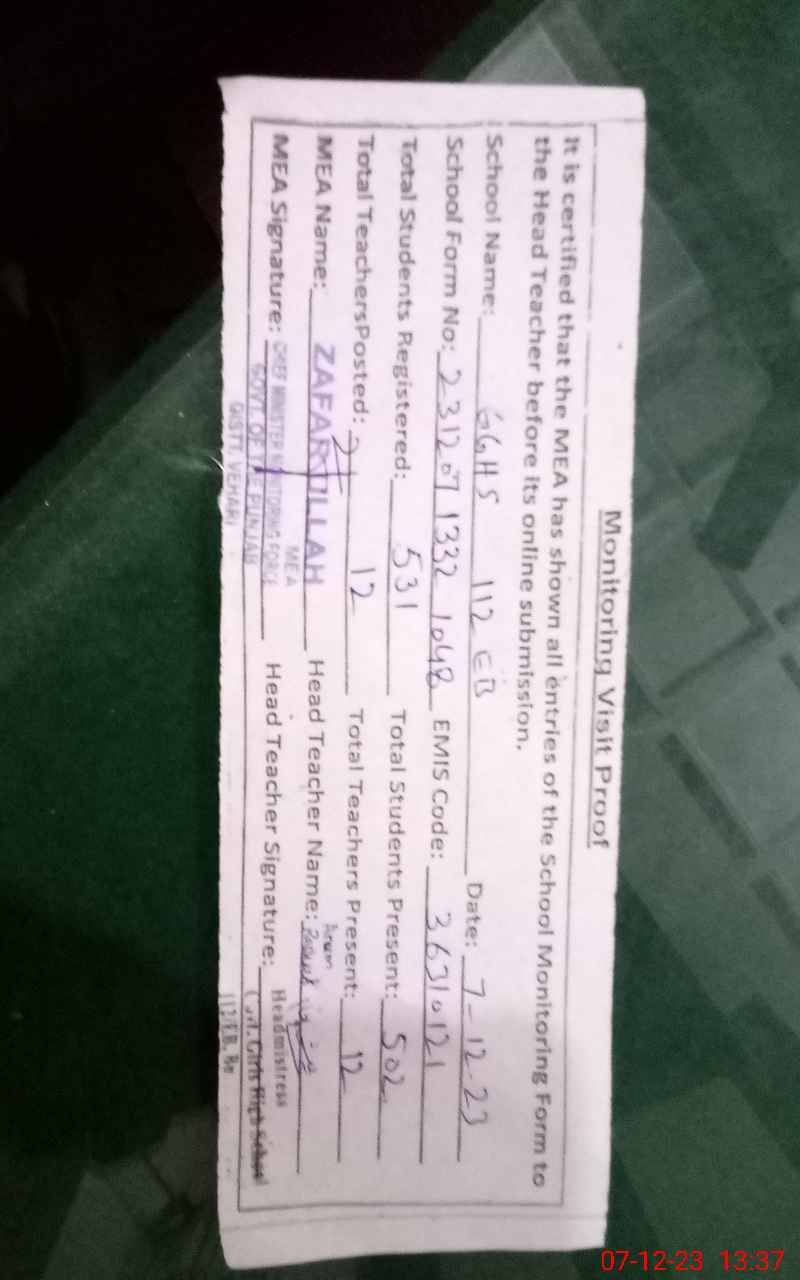 Monitoring Visit Proof
It is certified that the MEA has shown all entries of the School Monitoring Form to
the Head Teacher before its online submission.
School Name: GGHS 112 EB Date: 7-12-23
School Form No: 231207 1332 1048 EMIS Code: 36310121
Total Students Registered: 531 Total Students Present: 502
Total TeachersPosted: 12 Total Teachers Present: 12
MEA Name: ZAFARULLAH Head Teacher Name:
MEA
MEA Signature: CHIEF MINISTER MONITORING FORCE Head Teacher Signature: Headmistress
GOVT. OF THE PUNJAB Govt. Girls High School
DISTT. VEHARI 112/E.B.
07-12-23 13:37